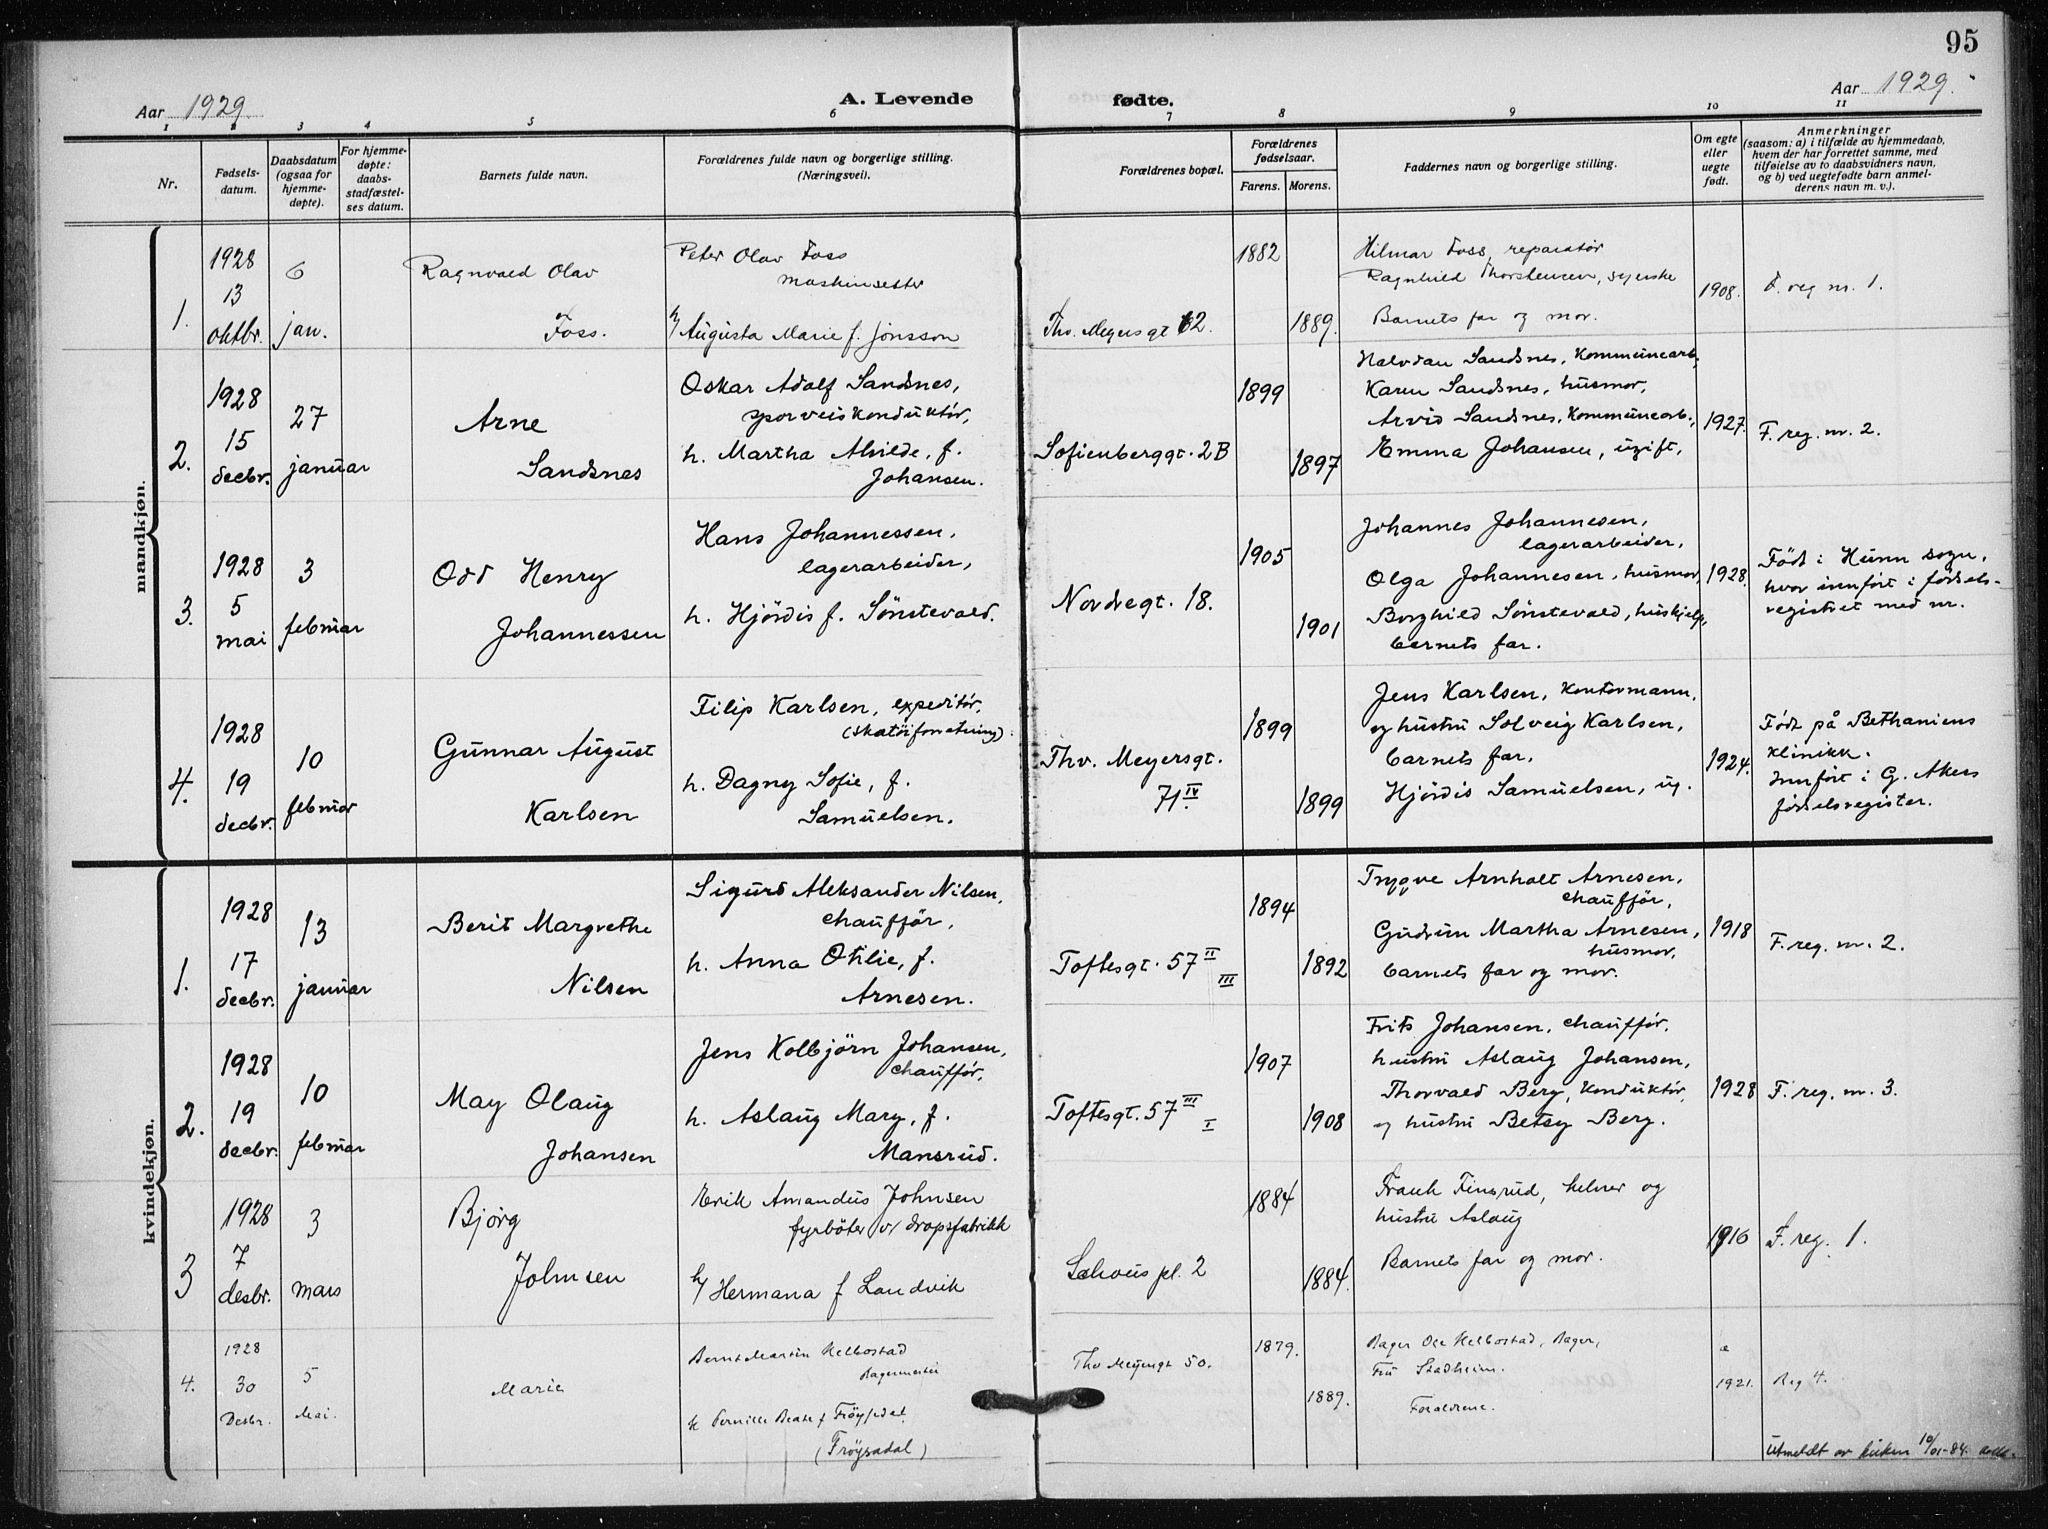 95
Aar 1929.
A. Levende
fødte.
Aar 1929.
1 2 3 4 5 6 7 8 9 10 11
Nr.
Fødsels-
datum.
Daabsdatum
(ogsaa for
hjemme-
døpte).
For hjemme-
døpte:
daabs-
stadfæstel-
ses datum.
Barnets fulde navn.
Forældrenes fulde navn og borgerlige stilling.
(Næringsvei).
Forældrenes bopæl.
Forældrenes
fødselsaar.
Farens. Morens.
Faddernes navn og borgerlige stilling.
Om egte
eller
uegte
født.
Anmerkninger
(saasom: a) i tilfælde av hjemmedaab,
hvem der har forrettet samme, med
tilføielse av to daabsvidners navn,
og b) ved uegtefødte barn anmel-
derens navn m. v.).
mandkjøn.
1.
1928
13
oktbr.
6
jan.
Ragnvald Olav
Foss.
Peter Olav Foss
maskinsetter
h/ Augusta Marie f. Jonsson
Thv. Meyersgt 62.
1882
1889.
Hilmar Foss, reparatør
Ragnhild Thorstensen, syerske
Barnets far og mor.
1908.
F. reg nr. 1.
2.
1928
15
decbr.
27
januar
Arne
Sandsnes
Oskar Adolf Sandsnes,
sporveiskonduktör,
h. Martha Alvilde, f.
Johansen.
Sofienberggt. 2B
1899
1897
Halvdan Sandsnes, kommunearb.,
Karen Sandsnes, husmor,
Arvid Sandsnes, kommunearb.,
Emma Johansen, ugift,
1927.
F. reg. nr. 2.
3.
1928
5
mai
3
februar
Odd Henry
Johannessen
Hans Johannessen,
lagerarbeider,
h. Hjördis f. Sönstevald.
Nordregt. 18.
1905
1901
Johannes Johannesen,
lagerarbeider,
Olga Johannesen, husmor,
Borghild Sönstevald, huskjelp,
barnets far.
1928.
Födt i Hunn sogn,
hvor innfört i födsels-
registret med nr.
4.
1928
19
decbr.
10
februar
Gunnar August
Karlsen
Filip Karlsen, expeditör,
(skotöiforretning).
h. Dagny Sofie, f.
Samuelsen.
Thv. Meyersgt.
71 IV
1899
1899
Jens Karlsen, kontormann,
og hustru Solveig Karlsen,
barnets far,
Hjördis Samuelsen, ug.
1924.
Födt på Bethaniens
klinikk.
Innfört i G. Akers
födselsregister.
kvindekjøn.
1.
1928
17
decbr.
13
januar
Berit Margrethe
Nilsen
Sigurd Aleksander Nilsen,
chaufför,
h. Anna Otilie, f.
Arnesen.
Toftesgt. 57 II
III
1894
1892
Trygve Arnholt Arnesen,
chaufför,
Gudrun Martha Arnesen,
husmor,
barnets far og mor.
1918
F. reg. nr. 2.
2.
1928
19
decbr.
10
februar
May Olaug
Johansen
Jens Kolbjörn Johansen,
chaufför,
h. Aslaug Mary, f.
Mansrud.
Toftesgt. 57 III
I
1907
1908
Frits Johansen, chaufför,
hustru Aslaug Johansen,
Thorvald Berg, konduktör,
og hustru Betsy Berg.
1928
F. reg. nr. 3.
3
1928
7
desbr.
3
mars
Bjørg
Johnsen
Erik Amandus Johnsen
fyrböter v/ dropsfabrikk
h/ Hermana f Landvik
Schous pl. 2
1884
1884.
Frank Finsrud, kelner og
hustru Aslaug
Barnets far og mor.
1910
F. reg. 1.
4.
1928
30
Desbr.
5
Mai.
Marie
Bernt Martin Helbostad
Bagermester
h Pernille Beate f Frøysedal
(Frøysadal)
Thv Meyersgt 50.
1879.
1889.
Bager Ole Helbostad, Bager,
Fru Stadheim.
Forældrene.
e
1921.
Reg 4.
Utmeldt av kirken 10/01-84.